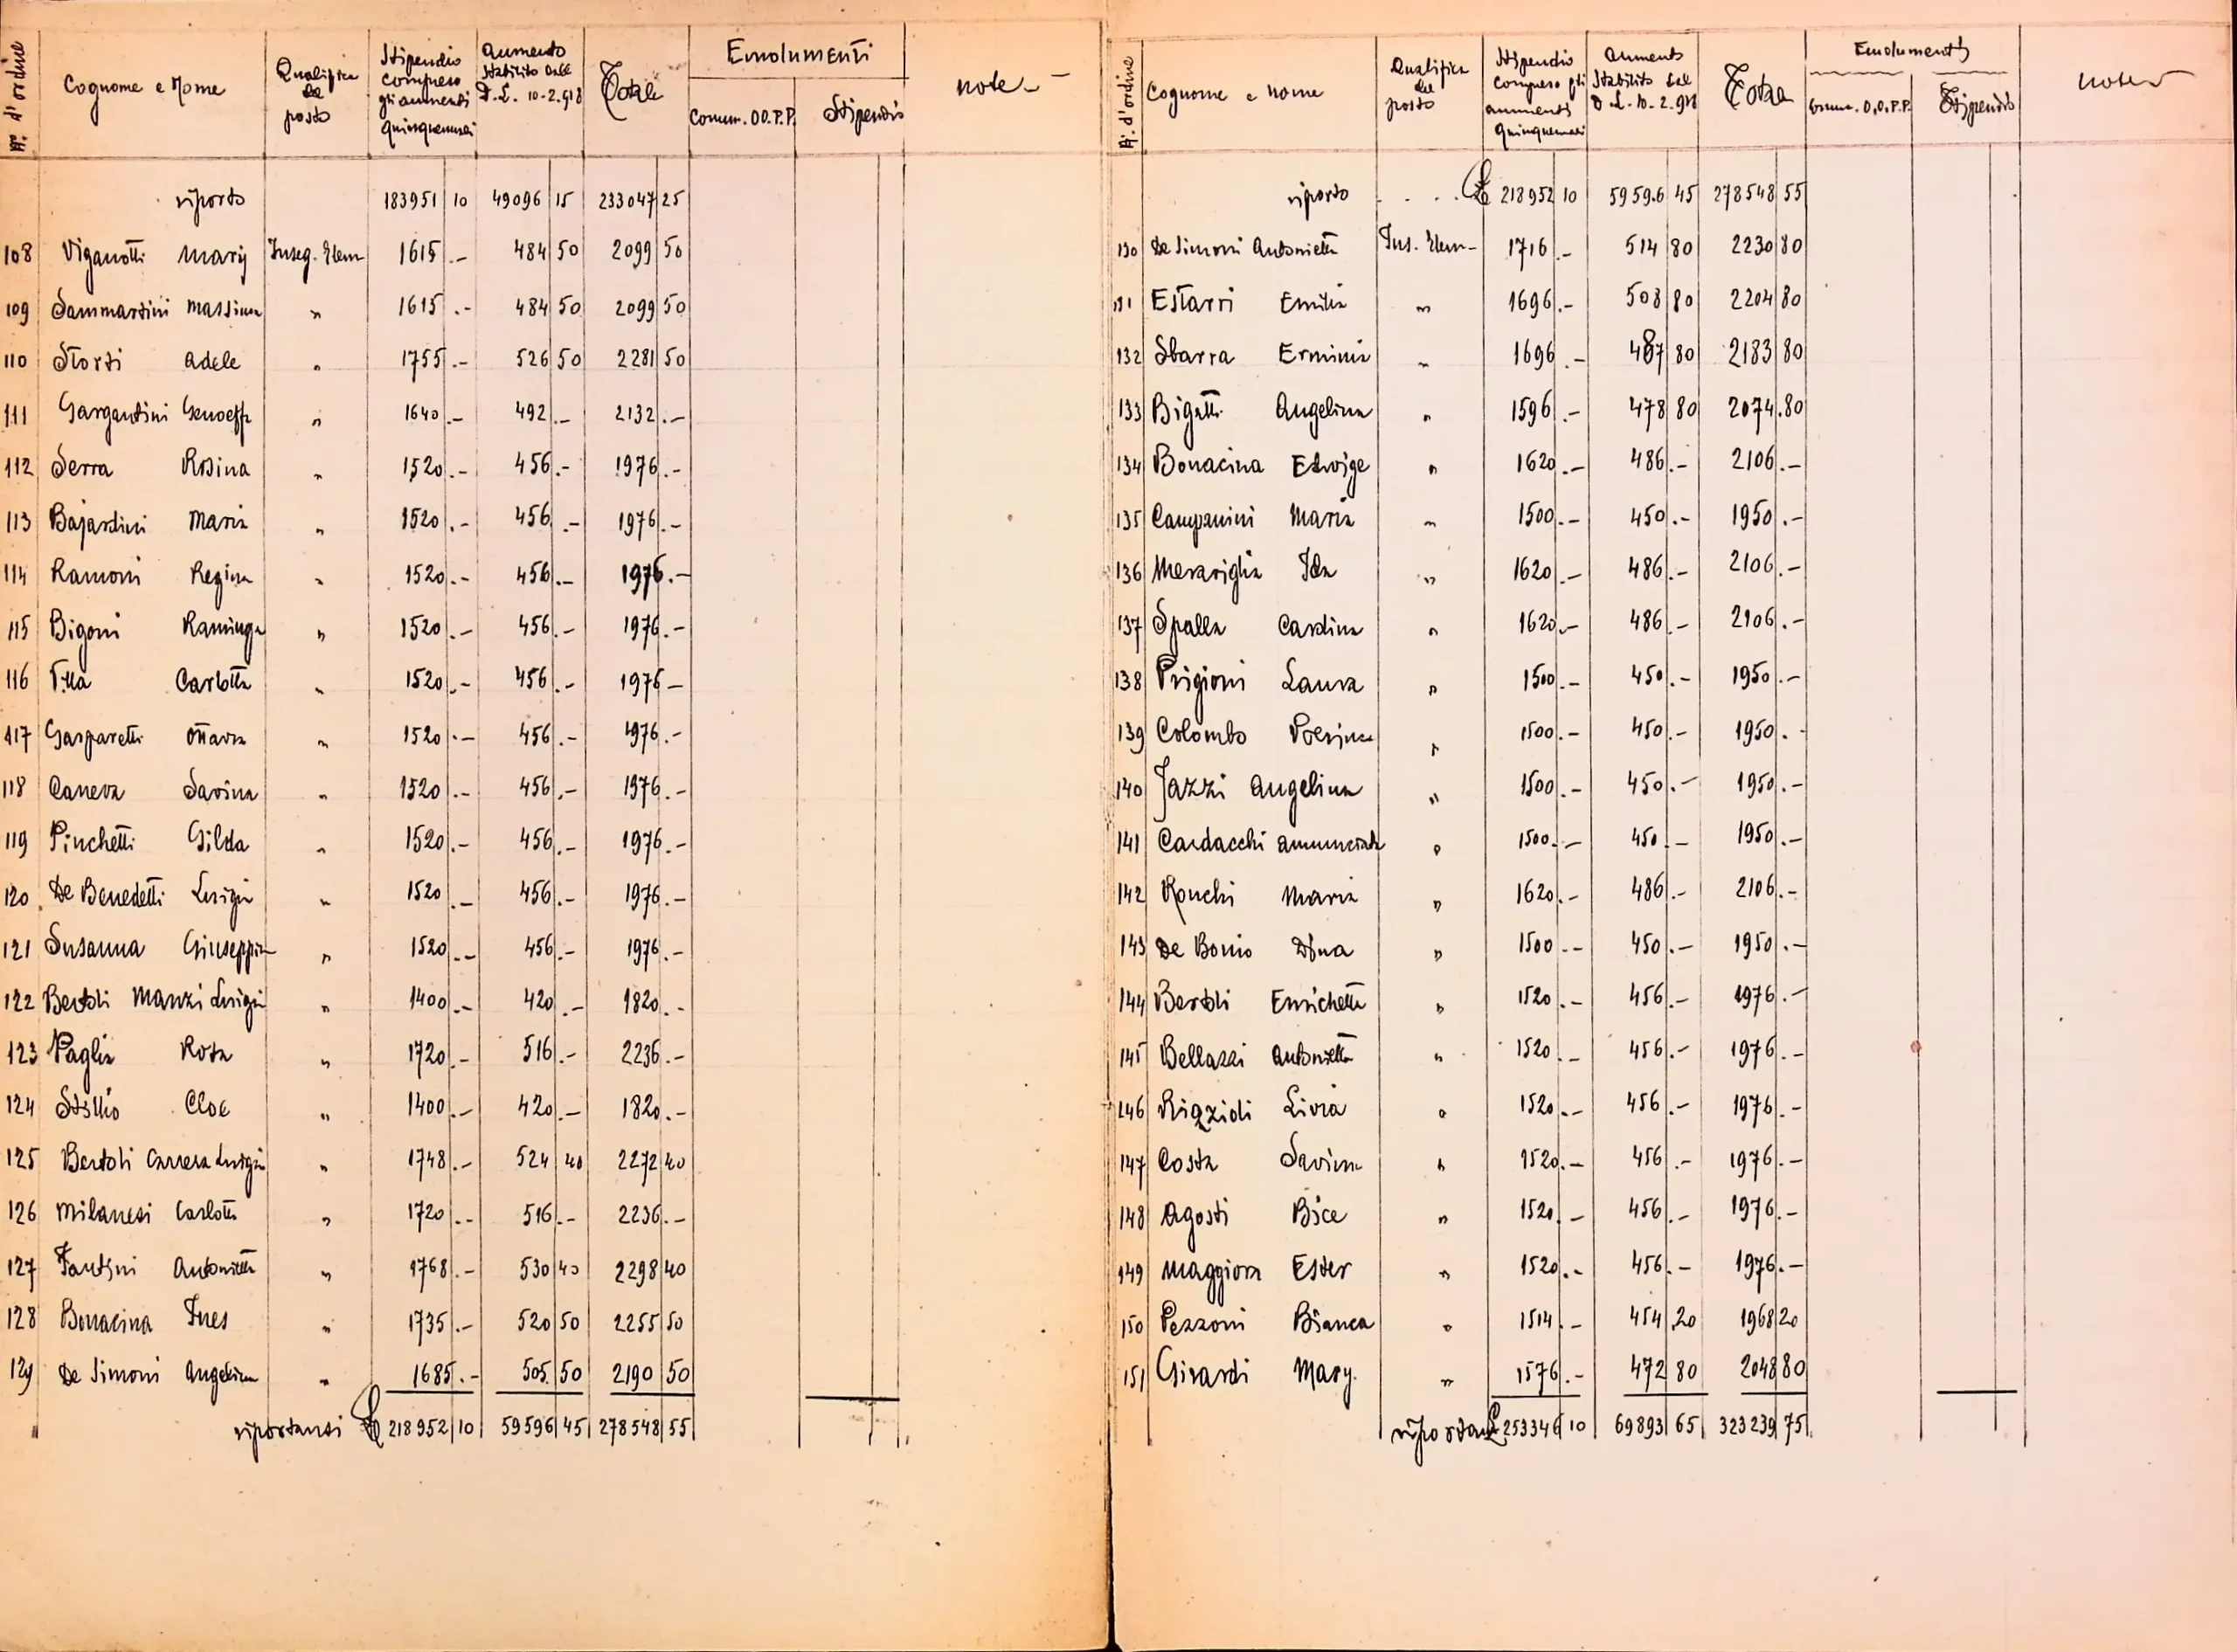 N. d'ordine | Cognome e Nome | Qualifica del posto | Stipendio compreso gli aumenti quinquennali | Aumento stabilito dal D.L. 10-2-918 | Totale | Emolumenti | Comm. OO.P.P. | Stipendio | note
riporto 183951 10 49096 15 233047 25
108 Viganotti Mary Inseg. Elem 1615 .- 484 50 2099 50
109 Sammartini Massima " 1615 .- 484 50 2099 50
110 Storti Adele " 1755 .- 526 50 2281 50
111 Gargantini Genoeffa " 1640 .- 492 .- 2132 .-
112 Serra Rosina " 1520 .- 456 .- 1976 .-
113 Bajardini Maria " 1520 .- 456 .- 1976 .-
114 Ramoni Regina " 1520 .- 456 .- 1976 .-
115 Bigoni Raminga " 1520 .- 456 .- 1976 .-
116 Carlotta " 1520 .- 456 .- 1976 -
117 Gasparetti Ottavia " 1520 .- 456 .- 1976 .-
118 Caneva Savina " 1520 .- 456 .- 1976 .-
119 Pinchetti Gilda " 1520 .- 456 .- 1976 .-
120 De Benedetti Luigia " 1520 .- 456 .- 1976 .-
121 Susanna Giuseppina " 1520 .- 456 .- 1976 .-
122 Bertoli Manzi Luigia " 1400 .- 420 .- 1820 .-
123 Paglia Rosa " 1720 .- 516 .- 2236 .-
124 Cloe " 1400 .- 420 .- 1820 .-
125 Bertoli Carrera Luigia " 1748 .- 524 40 2272 40
126 Milanesi Carlotta " 1720 .- 516 .- 2236 .-
127 Fantini Antonietta " 1768 .- 530 40 2298 40
128 Bonacina Ines " 1735 .- 520 50 2255 50
129 De Simoni Angelina " 1685 .- 505 50 2190 50
riportansi £ 218952 10 59596 45 278548 55
N. d'ordine | Cognome e nome | Qualifica del posto | Stipendio compreso gli aumenti quinquennali | Aumento stabilito dal D.L. 10-2-918 | Totale | Emolumenti | Comm. O.O.P.P. | Stipendio | note
riporto . . . . £ 218952 10 59596 45 278548 55
130 De Simoni Antonietta Ins. Elem- 1716 .- 514 80 2230 80
131 Estarri Emilia " 1696 .- 508 80 2204 80
132 Sbarra Erminia " 1696 .- 487 80 2183 80
133 Bigatti Angelina " 1596 .- 478 80 2074 .80
134 Bonacina Edvige " 1620 .- 486 .- 2106 .-
135 Campanini Maria " 1500 .- 450 .- 1950 .-
136 Meraviglia Ida " 1620 .- 486 .- 2106 .-
137 Spalla Carolina " 1620 .- 486 .- 2106 .-
138 Prigioni Laura " 1500 .- 450 .- 1950 .-
139 Colombo " 1500 .- 450 .- 1950 .-
140 Jazzi Angelina " 1500 .- 450 .- 1950 .-
141 Cardacchi Annunciata " 1500 .- 450 .- 1950 .-
142 Ronchi Maria " 1620 .- 486 .- 2106 .-
143 De Bonio Dina " 1500 .- 450 .- 1950 .-
144 Bertoli Enrichetta " 1520 .- 456 .- 1976 .-
145 Bellazzi Antonietta " 1520 .- 456 .- 1976 .-
146 Rizzioli Livia " 1520 .- 456 .- 1976 .-
147 Costa Savina " 1520 .- 456 .- 1976 .-
148 Agosti Bice " 1520 .- 456 .- 1976 .-
149 Maggiora Ester " 1520 .- 456 .- 1976 .-
150 Pezzoni Bianca " 1514 .- 454 .20 1968 20
151 Girardi Mary. " 1576 .- 472 80 2048 80
riportansi £ 253346 10 69893 65 323239 75